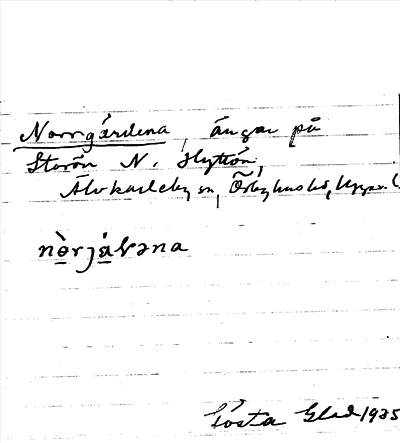 Norrgårdena, ängar på
Storön N. Hyttön,
Älvkarleby sn, Örbyhus hd, Upps. l
nòrjáɭəna
Gösta Glad 1935